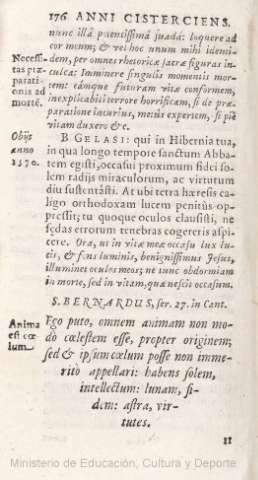 176 ANNI CISTERCIENS.
nunc illâ potentissimâ suadâ: loquere ad
cor meum; & vel hoc unum mihi identi-
dem, per omnes rhetoricæ sacræ figuras in-
culca: Imminere singulis momentis mor-
tem: eámque futuram vitæ conformem,
inexplicabili terrore horrificam, si de præ-
paratione securius, metus expertem, si piè
vitam duxero &c.
Necessi-
tas præ-
parati-
onis ad
mortē.
B GELASI: qui in Hibernia tua,
in qua longo tempore sanctum Abba-
tem egisti, occasui proximum fidei so-
lem radijs miraculorum, ac virtutum
diu sustentâsti. At ubi tetra hæresis ca-
ligo orthodoxam lucem penitùs op-
pressit; tu quoque oculos clausisti, ne
fœdas errorum tenebras cogereris aspi-
cere. Ora, ut in vitæ meæ occasu lux lu-
cis, & fons luminis, benignissimus Jesus,
illuminet oculos meos; ne tunc obdormiam
in morte, sed in vitam, quæ nescit occasum.
Obijt
anno
1570.
S. BERNARDUS, ser. 27. in Cant.
Ego puto, omnem animam non mo-
dò cœlestem esse, propter originem;
sed & ipsum cœlum posse non imme-
ritò appellari: habens solem,
intellectum: lunam, fi-
dem: astra, vir-
tutes.
Anima
est cœ-
lum
Ministerio de Educación, Cultura y Deporte